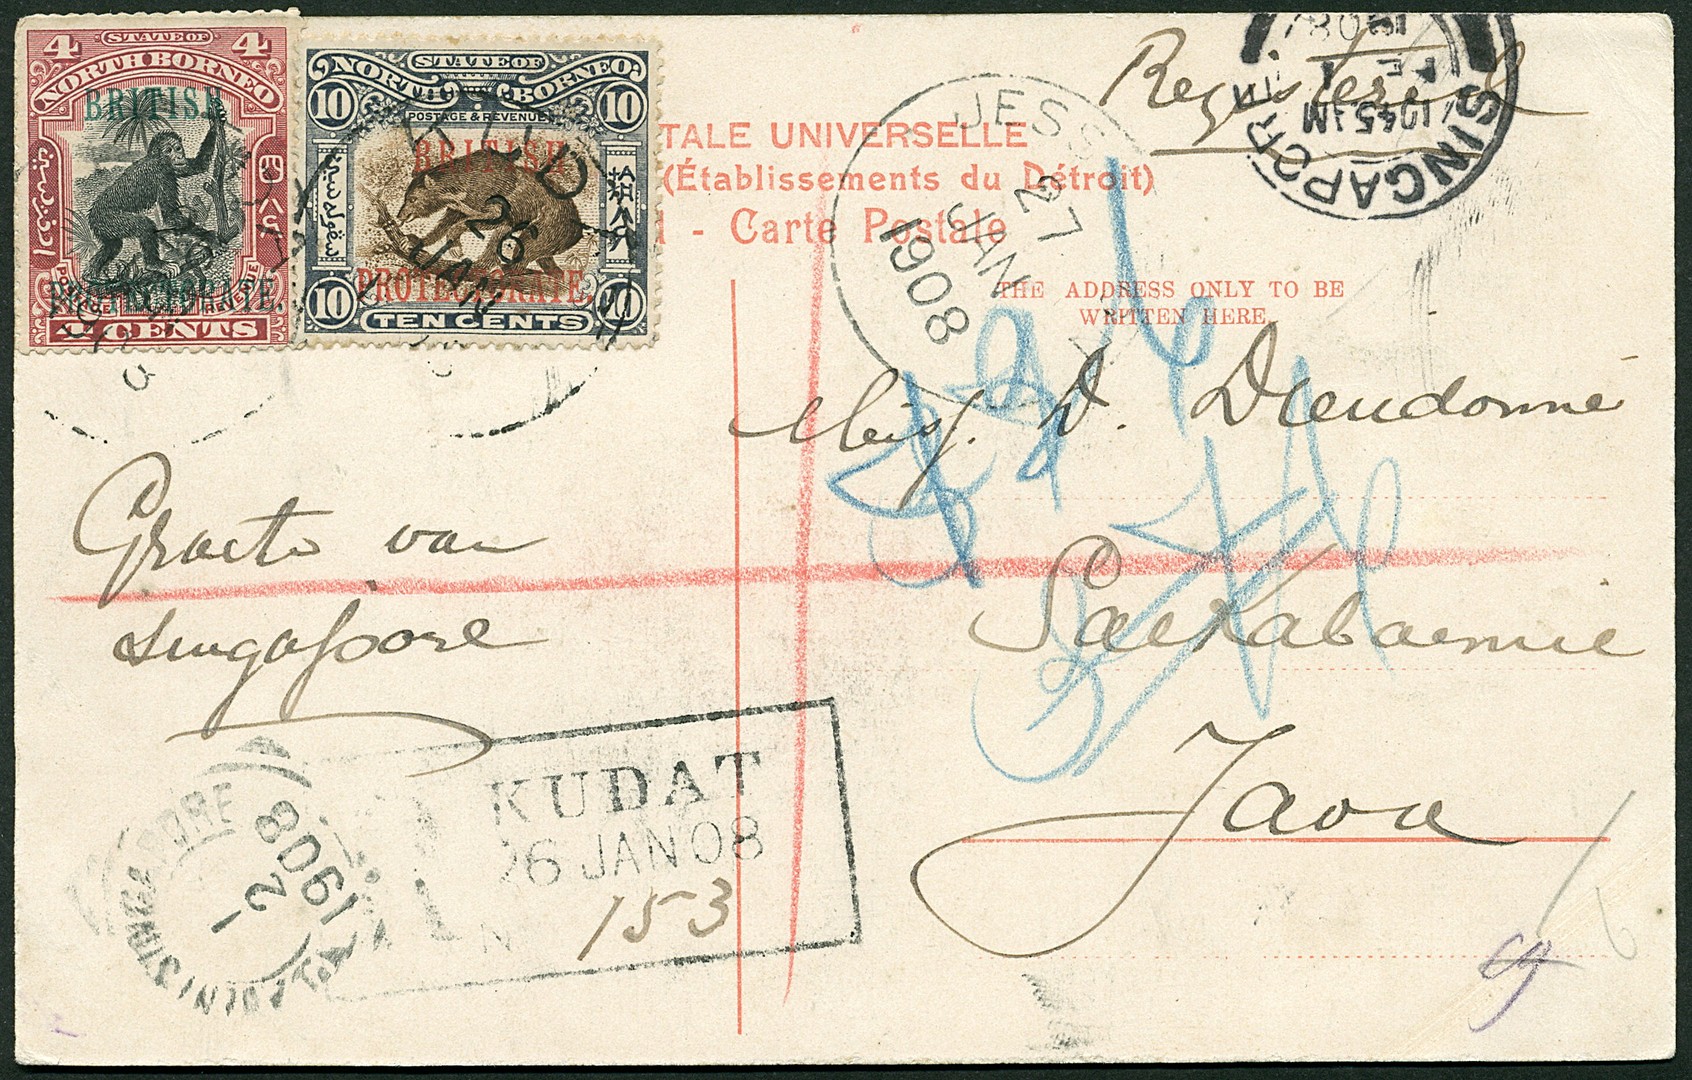 4 STATE OF 4
NORTH BORNEO
BRITISH
PROTECTORATE.
POSTAGE & REVENUE
CENTS
STATE OF
NORTH BORNEO
10 10
POSTAGE & REVENUE
BRITISH
PROTECTORATE.
10 10
TEN CENTS
KUDAT
26
JAN
TALE UNIVERSELLE
(Établissements du Détroit)
- Carte Postale
THE ADDRESS ONLY TO BE
WRITTEN HERE.
JESS
27
JAN
1908
Registered
SINGAPORE
1045 AM
FE 1
1908
D. Dieudonné
Soekaboemie
Java
Groete van
Singapore
KUDAT
26 JAN 08
N 153
SINGAPORE
1908
2
PENINSULA